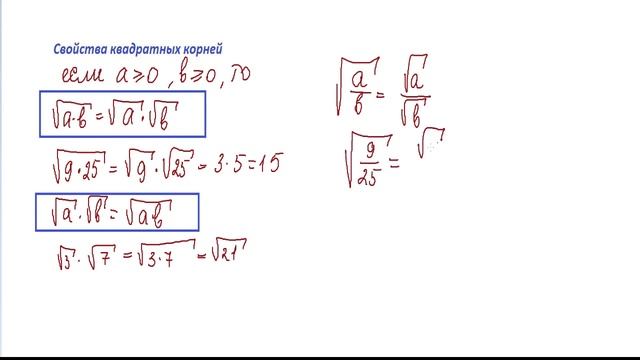 Свойства квадратных корней
если a ≥ 0, в ≥ 0, то
√(a·в) = √a · √в
√(9·25) = √9 · √25 = 3·5 = 15
√a · √в = √(aв)
√3 · √7 = √(3·7) = √21
√(a/в) = √a/√в
√(9/25) = √